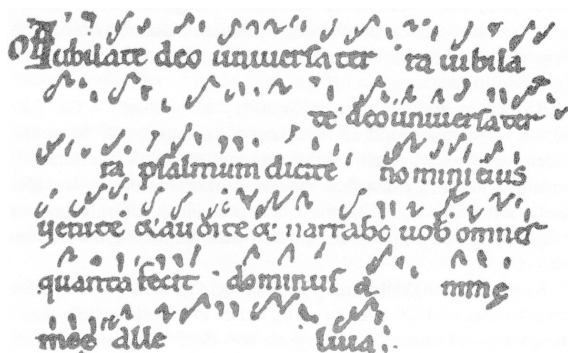 Iubilate deo uniuersa ter ra iubila
te deo uniuersa ter
ra psalmum dicite nomini eius
uenite & audite & narrabo uob omnes
quanta fecit dominus a nimę
meę alle luia